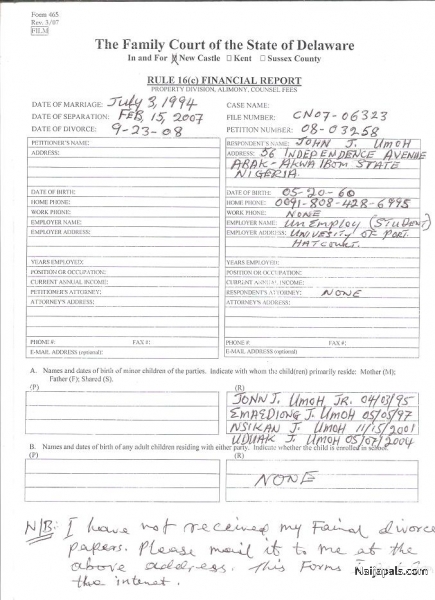 Form 465
Rev. 3/07
FILM
The Family Court of the State of Delaware
In and For ☒ New Castle ☐ Kent ☐ Sussex County
RULE 16(c) FINANCIAL REPORT
PROPERTY DIVISION, ALIMONY, COUNSEL FEES
DATE OF MARRIAGE: July 3, 1994
DATE OF SEPARATION: FEB 15, 2007
DATE OF DIVORCE: 9-23-08
CASE NAME:
FILE NUMBER: CN07-06323
PETITION NUMBER: 08-03258
PETITIONER'S NAME:
ADDRESS:
DATE OF BIRTH:
HOME PHONE:
WORK PHONE:
EMPLOYER NAME:
EMPLOYER ADDRESS:
YEARS EMPLOYED:
POSITION OR OCCUPATION:
CURRENT ANNUAL INCOME:
PETITIONER'S ATTORNEY:
ATTORNEY'S ADDRESS:
PHONE #: FAX #:
E-MAIL ADDRESS (optional):
RESPONDENT'S NAME: JOHN J. UMOH
ADDRESS: 56 INDEPENDENCE AVENUE
ABAK-AKWA IBOM STATE
NIGERIA
DATE OF BIRTH: 05-20-60
HOME PHONE: 0091-808-428-6995
WORK PHONE: NONE
EMPLOYER NAME: UNEMPLOY (STUDENT)
EMPLOYER ADDRESS: UNIVESITY OF PORT
HATCOURT.
YEARS EMPLOYED:
POSITION OR OCCUPATION:
CURRENT ANNUAL INCOME:
RESPONDENT'S ATTORNEY: NONE
ATTORNEY'S ADDRESS:
PHONE #: FAX #:
E-MAIL ADDRESS (optional):
A. Names and dates of birth of minor children of the parties. Indicate with whom the child(ren) primarily reside: Mother (M);
Father (F); Shared (S).
(P)
(R)
JOHN J. UMOH JR. 04/03/95
EMAEDIONG J. UMOH 05/05/97
NSIKAN J. UMOH 11/15/2001
UDUAK J. UMOH 05/07/2004
B. Names and dates of birth of any adult children residing with either party. Indicate whether the child is enrolled in school.
(P)
(R)
NONE
N/B: I have not received my Fainal divorce
papers. Please mail it to me at the
above address. This Forms is
the internet.
Naijapals.com